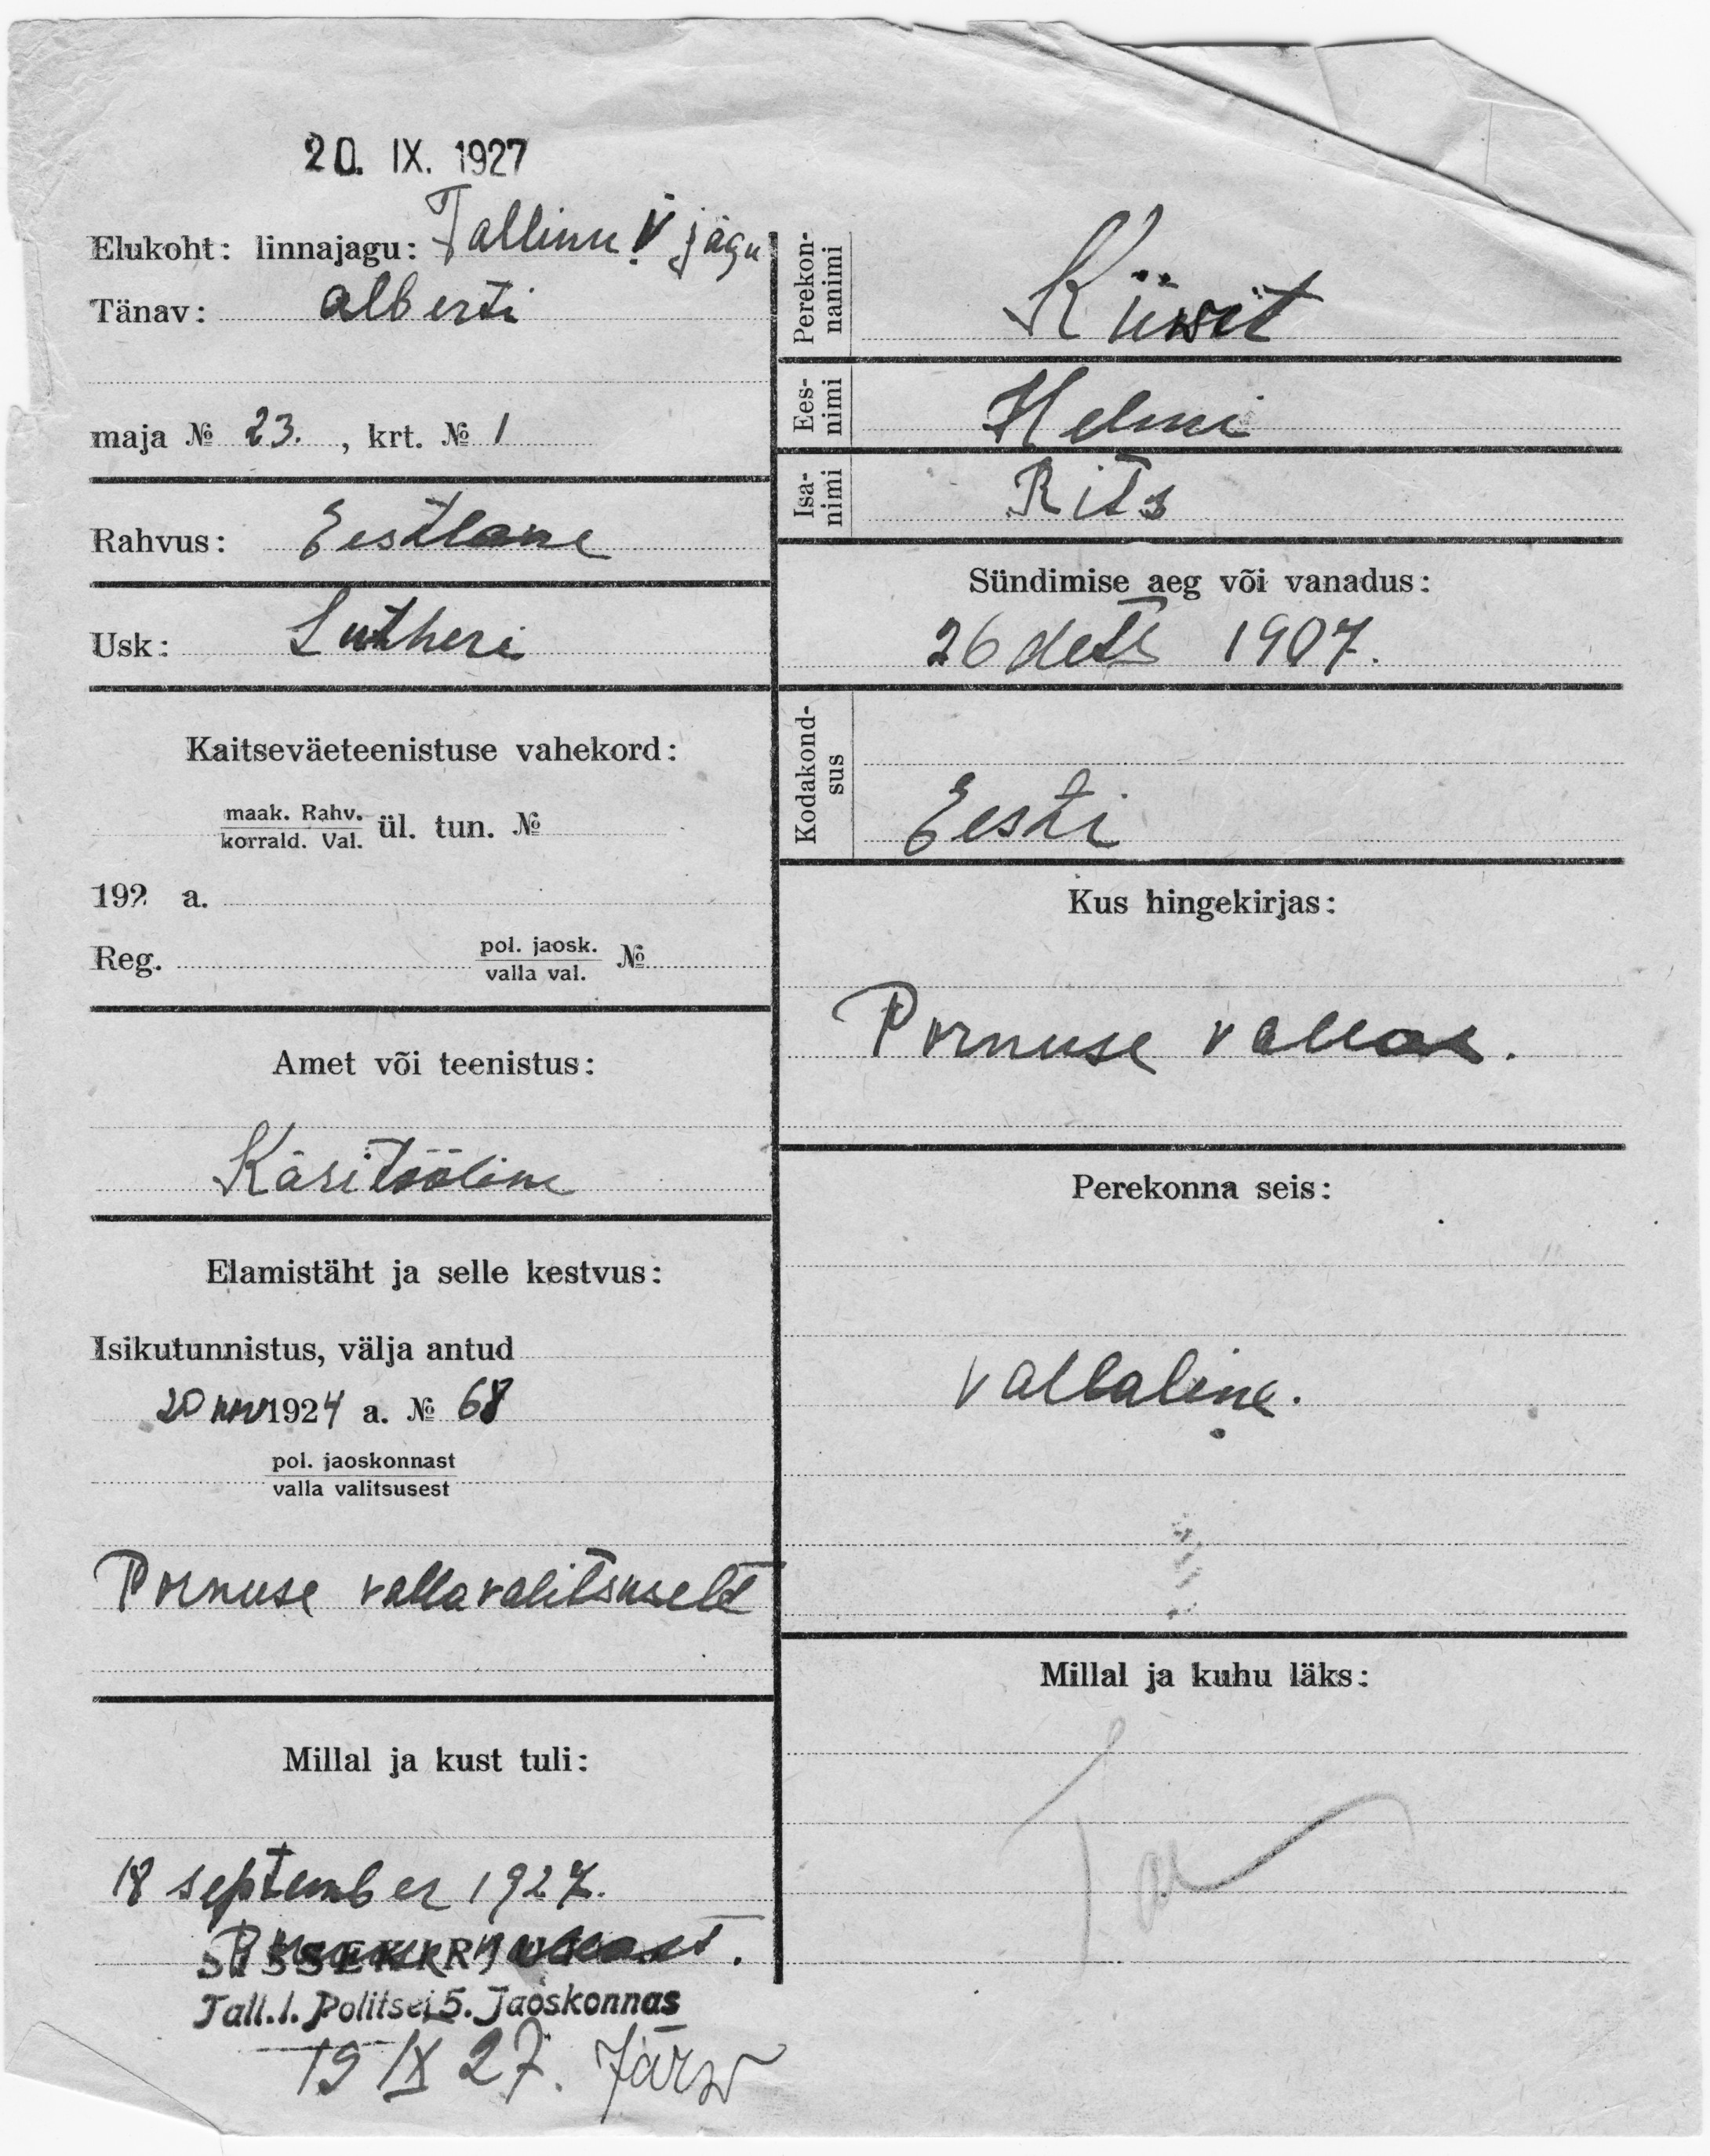 20. IX. 1927
Elukoht: linnajagu: Tallinn V jagu
Tänav: Alberti
maja № 23. , krt. № 1
Rahvus: Eestlane
Usk: Lutheri
Kaitseväeteenistuse vahekord:
maak. Rahv.
korrald. Val. ül. tun. №
192 a.
Reg. pol. jaosk.
valla val. №
Amet või teenistus:
Käsitööline
Elamistäht ja selle kestvus:
Isikutunnistus, välja antud
20 nov 1924 a. № 68
pol. jaoskonnast
valla valitsusest
Pornuse vallavalitsuselt
Millal ja kust tuli:
18 september 1927.
Pornuse vallast.
SISSEKIRJ
Tall. l. Politsei 5. Jaoskonnas
19 IX 27. Järw
Perekon-
nanimi
Küwit
Ees-
nimi
Helmi
Isa-
nimi
Rits
Sündimise aeg või vanadus:
26 dets 1907.
Kodakond-
sus
Eesti
Kus hingekirjas:
Pornuse vallas.
Perekonna seis:
vallaline.
Millal ja kuhu läks: